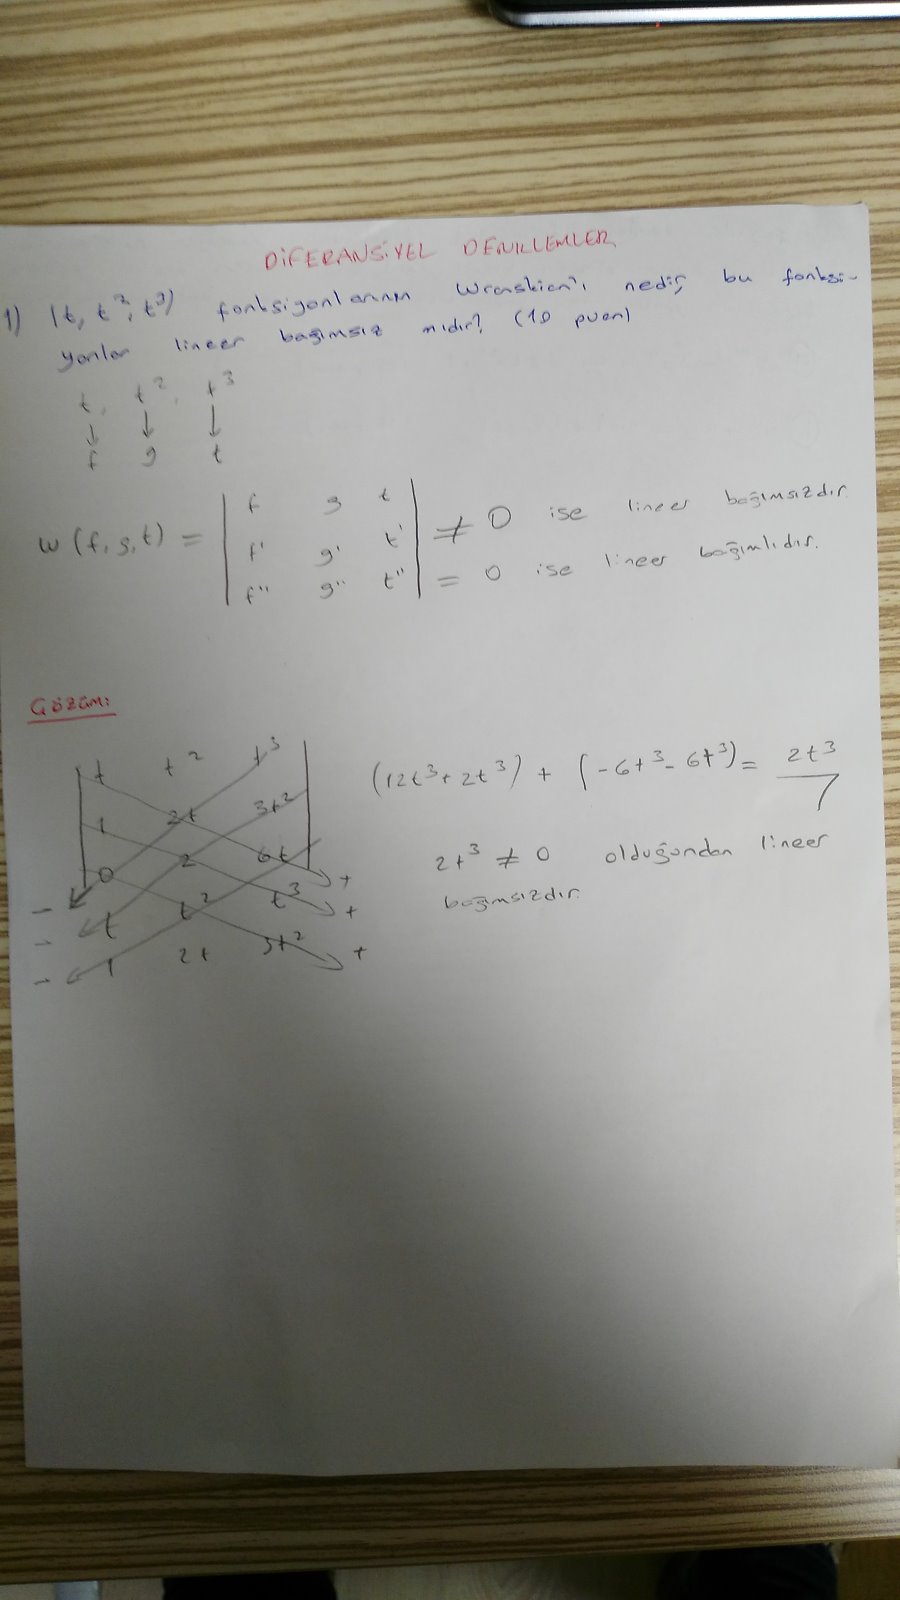 DİFERANSİYEL DENKLEMLER
1) (t, t², t³) fonksiyonlarının Wronskien'i nedir, bu fonksi-
yonlar lineer bağımsız mıdır? (10 puan)
t, t², t³
↓ ↓ ↓
f g t
w (f, g, t) = | f g t | ≠ 0 ise lineer bağımsızdır.
| f' g' t' |
| f'' g'' t'' | = 0 ise lineer bağımlıdır.
Çözüm:
t t² t³
1 2t 3t²
0 2 6t +
- t t² t³ +
- 1 2t 3t² +
-
(12t³ + 2t³) + (-6t³ - 6t³) = 2t³
2t³ ≠ 0 olduğundan lineer
bağımsızdır.